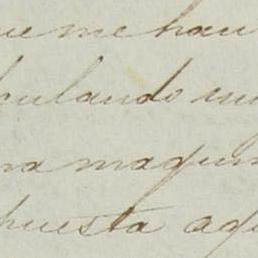 que me han
culando un
na maquin
puesta aqu